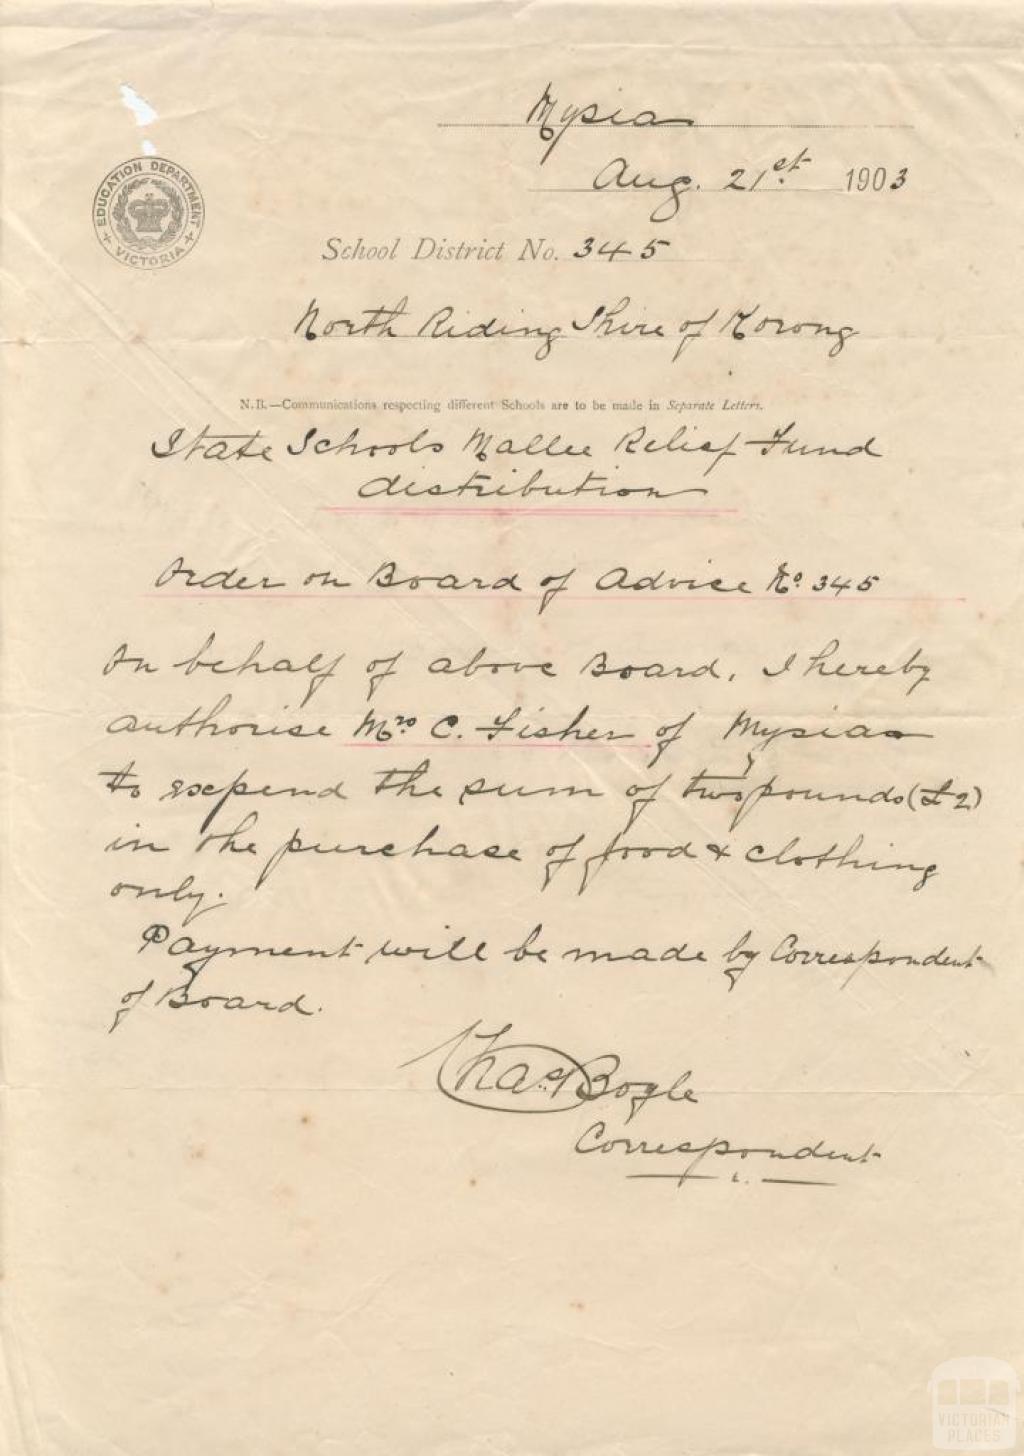 Mysia
Aug. 21st. 1903
EDUCATION DEPARTMENT
VICTORIA
School District No. 345
North Riding Shire of Korong
N.B.—Communications respecting different Schools are to be made in Separate Letters.
State Schools Mallee Relief Fund
distribution
Order on Board of Advice No. 345
On behalf of above Board, I hereby
authorise Mrs C. Fisher of Mysia
to expend the sum of two pounds (£2)
in the purchase of food & clothing
only.
Payment will be made by Correspondent
of Board.
Chas Boyle
Correspondent
VICTORIAN
PLACES